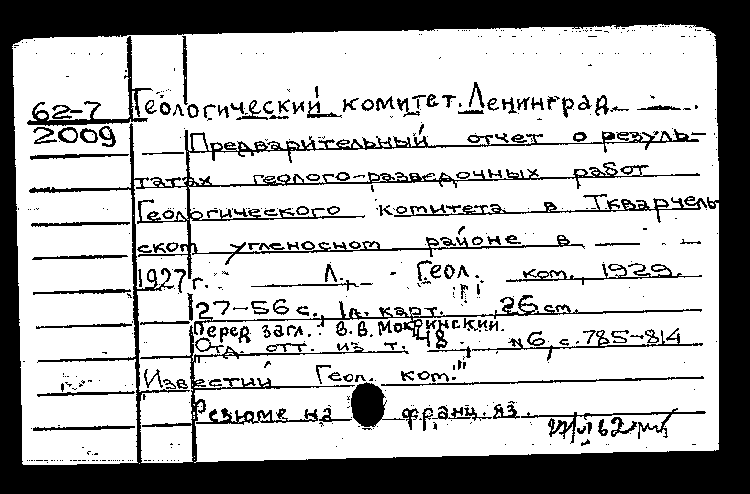 62-7 Геологический комитет. Ленинград.
2009 Предварительный отчет о резуль-
татах геолого-разведочных работ
Геологического комитета в Ткварчель-
ском угленосном районе в
1927 г. Л., Геол. ком., 1929.
27-56 с., 1 л. карт. 26 см.
Перед загл.: В.В. Мокринский.
Отд. отт. из т. 48, № 6, с. 785-814
"Известий Геол. ком."
Резюме на франц. яз.